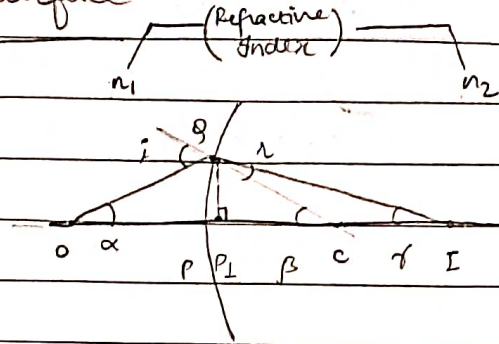 (Refractive
Index)
n1 n2
i Q r
O α P P⊥ β C γ I